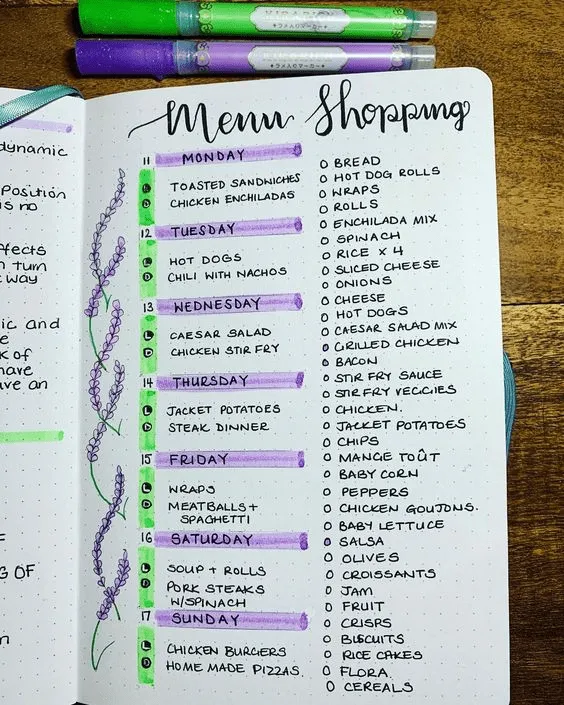 dynamic
Position
is no
turn
way
ic and
e
k of
have
ve an
G OF
Menu
11 MONDAY
L TOASTED SANDWICHES
D CHICKEN ENCHILADAS
12 TUESDAY
L HOT DOGS
D CHILI WITH NACHOS
13 WEDNESDAY
L CAESAR SALAD
D CHICKEN STIR FRY
14 THURSDAY
L JACKET POTATOES
D STEAK DINNER
15 FRIDAY
L WRAPS
D MEATBALLS +
SPAGHETTI
16 SATURDAY
L SOUP + ROLLS
D PORK STEAKS
W/SPINACH
17 SUNDAY
L CHICKEN BURGERS
D HOME MADE PIZZAS.
Shopping
BREAD
HOT DOG ROLLS
WRAPS
ROLLS
ENCHILADA MIX
SPINACH
RICE x 4
SLICED CHEESE
ONIONS
CHEESE
HOT DOGS
CAESAR SALAD MIX
GRILLED CHICKEN
BACON
STIR FRY SAUCE
STIR FRY VEGGIES
CHICKEN.
JACKET POTATOES
CHIPS
MANGE TOÛT
BABY CORN
PEPPERS
CHICKEN GOUJONS.
BABY LETTUCE
SALSA
OLIVES
CROISSANTS
JAM
FRUIT
CRISPS
BISCUITS
RICE CAKES
FLORA.
CEREALS